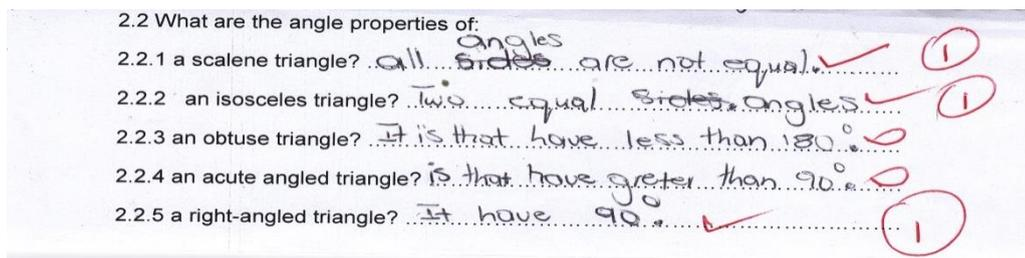 2.2 What are the angle properties of:
angles
2.2.1 a scalene triangle? all sides are not equal.
2.2.2 an isosceles triangle? Two equal sides. angles.
2.2.3 an obtuse triangle? It is that have less than 180°.
2.2.4 an acute angled triangle? is that have greter than 90°.
2.2.5 a right-angled triangle? It have 90°.
1
1
1